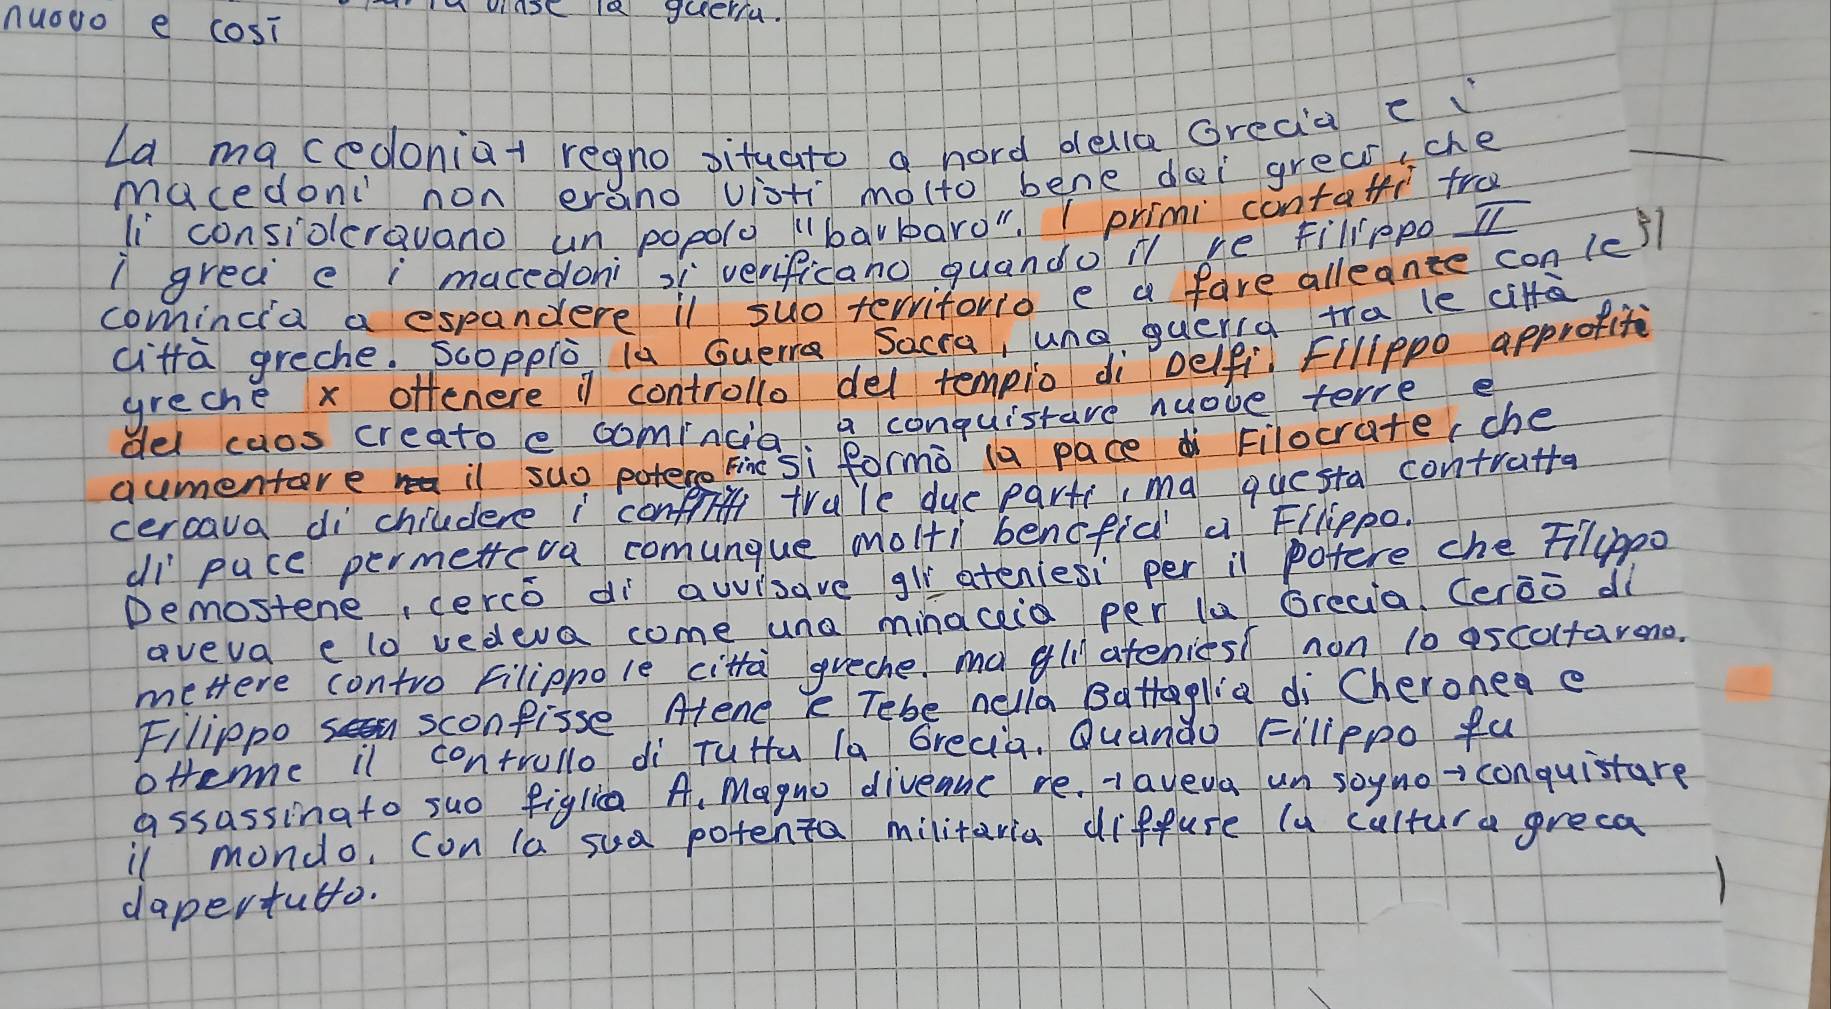 vinse la guerra.
nuovo e così
La macedonia → regno situato a nord della Grecia e i
macedoni non erano visti molto bene dai greci, che
li consideravano un popolo "barbaro". I primi contatti tra
i greci e i macedoni si verificano quando il re Filippo II
comincia a espandere il suo territorio e a fare alleanze con le
città greche. Scoppiò la Guerra Sacra, una guerra tra le città
greche x ottenere il controllo del tempio di Delfi. Filippo approfitò
del caos creato e comincia a conquistare nuove terre e
aumentare il suo potere Fine si formò la pace di Filocrate, che
cercava di chiudere i conflitti tra le due parti, ma questa contratta
di pace permetteva comunque molti benefici a Filippo.
Demostene, cercò di avvisare gli ateniesi per il potere che Filippo
aveva e lo vedeva come una minaccia per la Grecia. Cercò di
mettere contro Filippo le città greche. ma gli ateniesi non lo ascoltarono.
Filippo sconfisse Atene e Tebe nella Battaglia di Cheronea e
ottenne il controllo di Tutta la Grecia. Quando Filippo fu
assassinato suo figlio A. Magno divenne re. → aveva un sogno → conquistare
il mondo. Con la sua potenza militaria diffuse la cultura greca
dapertutto.